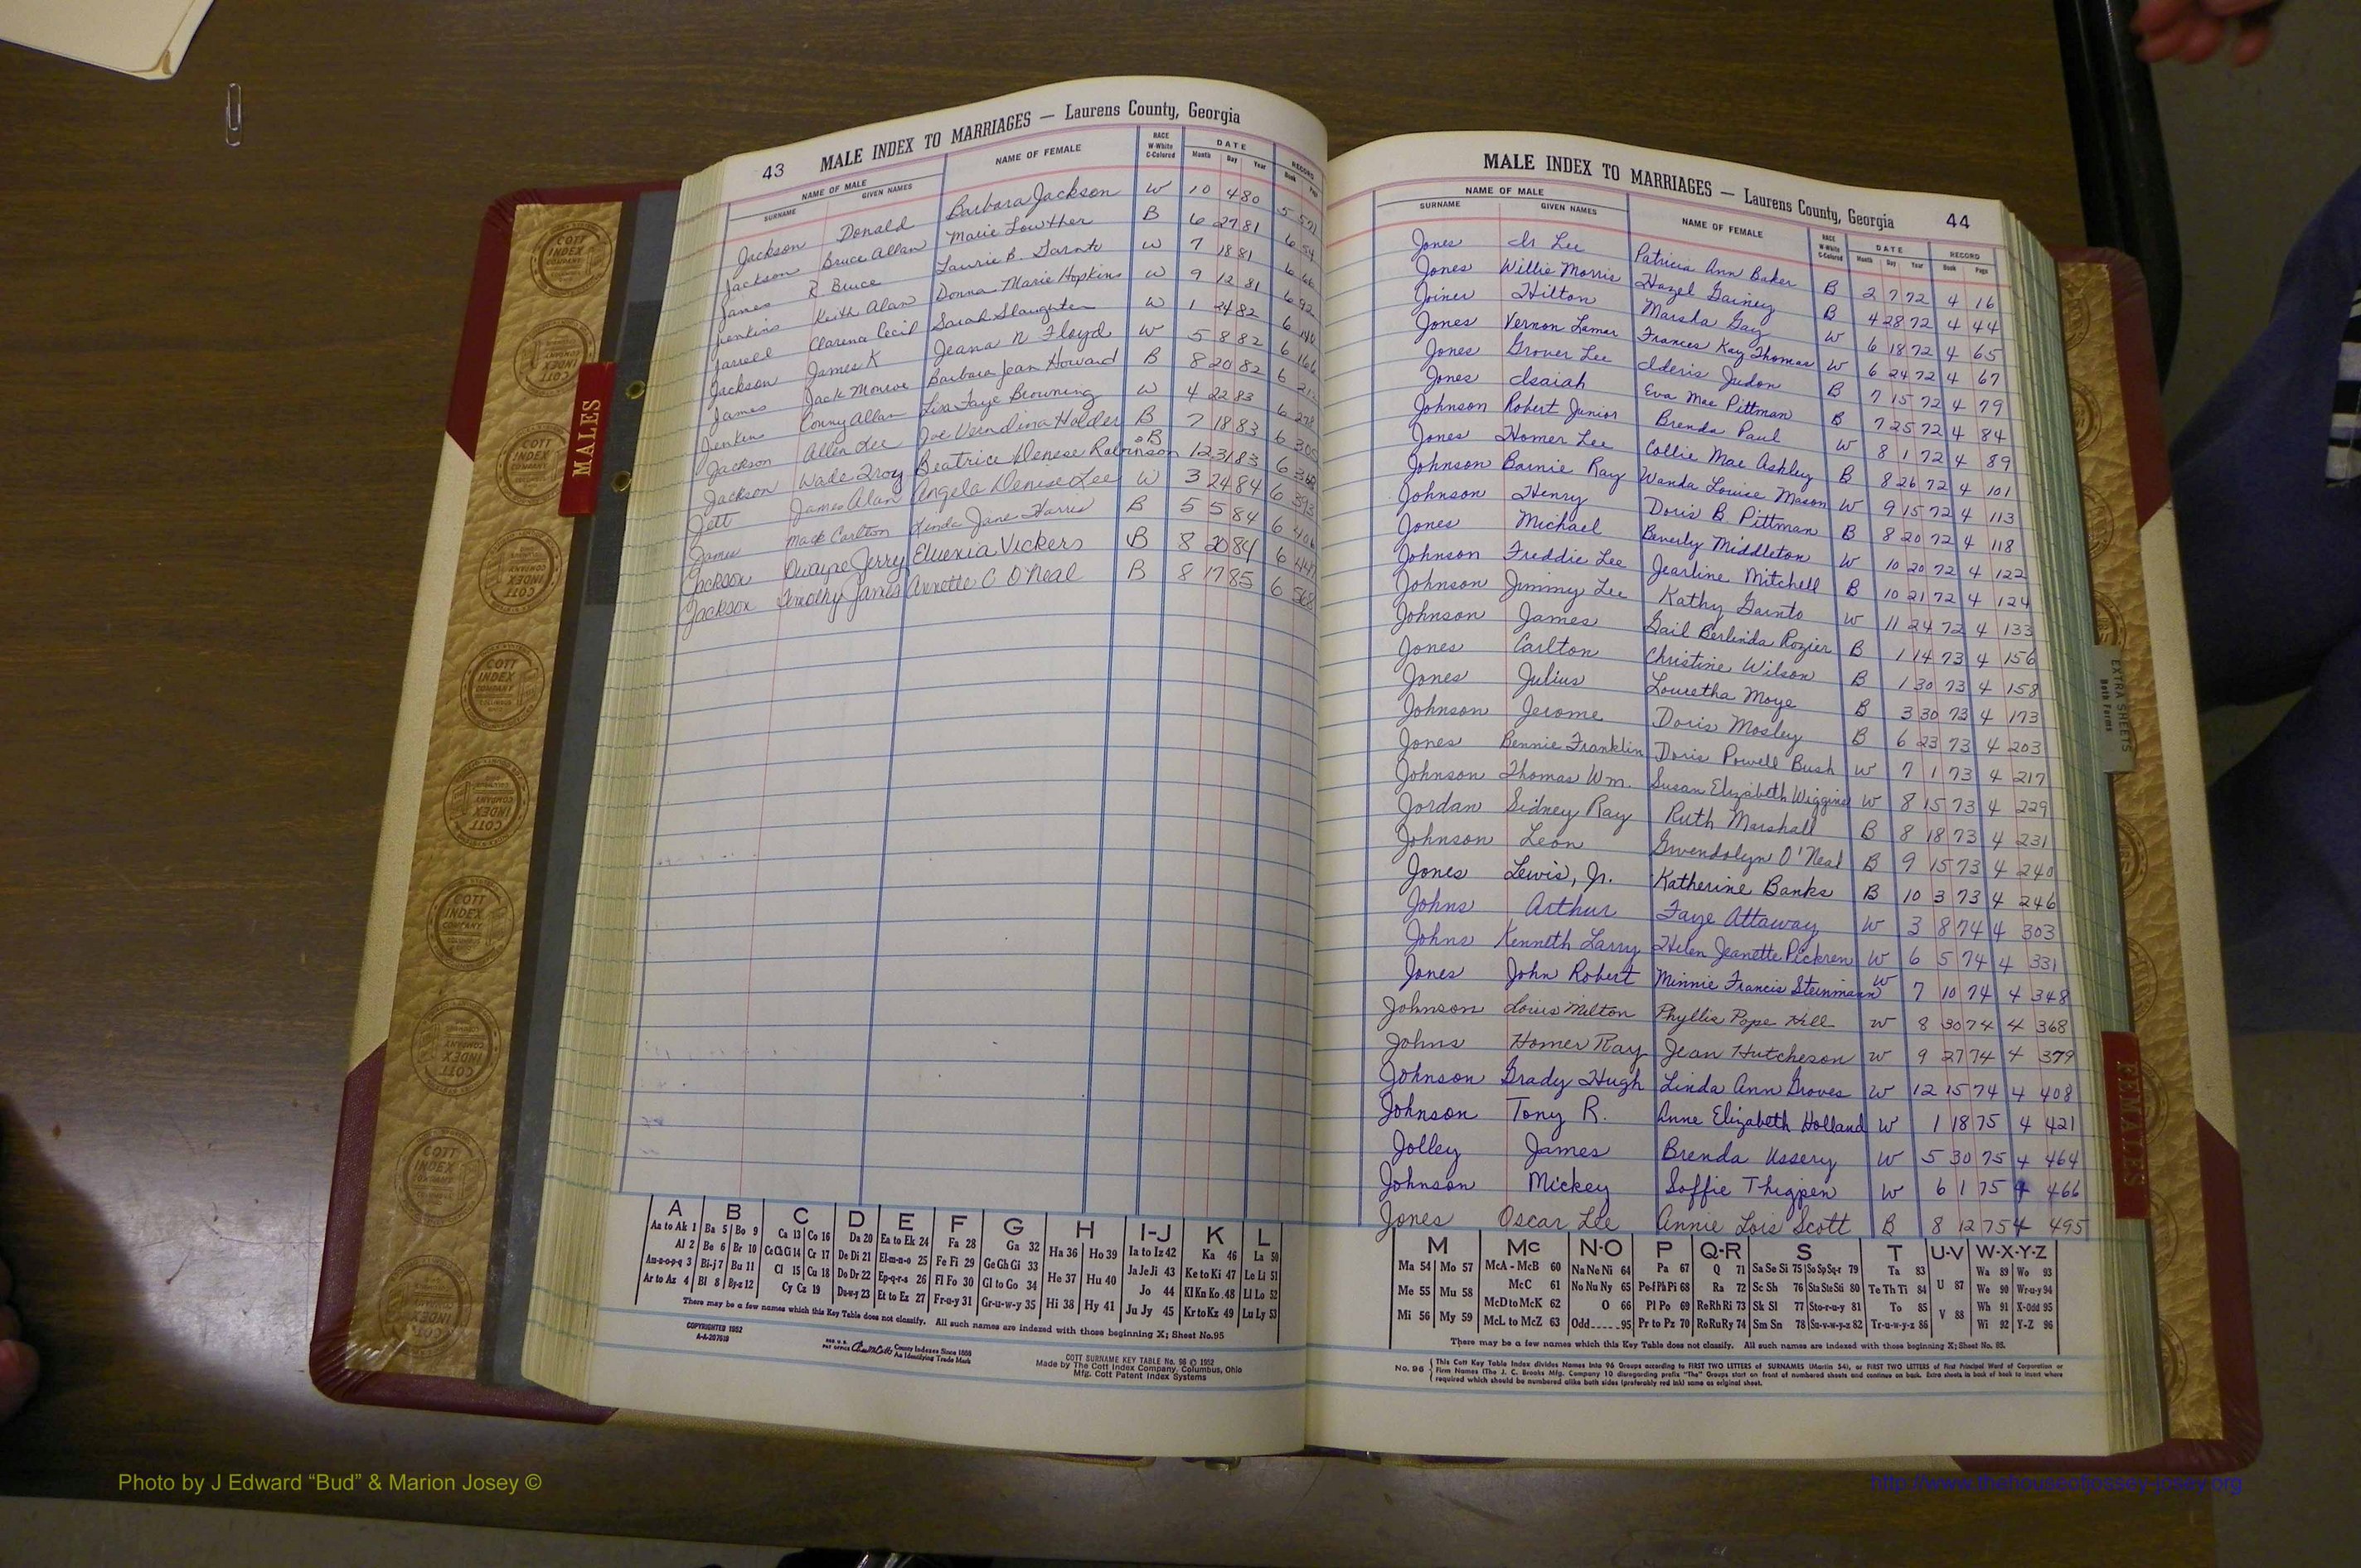 43 MALE INDEX TO MARRIAGES — Laurens County, Georgia
NAME OF MALE NAME OF FEMALE RACE W-White C-Colored DATE RECORD
SURNAME GIVEN NAMES Month Day Year Book Page
Jackson Donald Barbara Jackson W 10 4 80 5
Jackson Bruce Allan Marie Lowther B 6 27 81 6
James R Bruce Laurie B. W 7 18 81 6
Jenkins Keith Alan Donna Marie Hopkins W 9 12 81 6 92
Jarrell Clarence Cecil Sarah Slaughter W 1 24 82 6 140
Jackson James K Jeana N Floyd W 5 8 82 6 166
James Jack Monroe Barbara Jean Howard B 8 20 82 6
Jenkins Conny Allan Lisa Faye Browning W 4 22 83 6 278
Jackson Allen Lee Holder B 7 18 83 6 305
Jackson Wade Troy Beatrice Denese Robinson B 12 31 83 6
Jett James Alan Angela Denise Lee W 3 24 84 6 393
James Mack Carlton Linda Jane Harris B 5 5 84 6
Jackson Dwayne Jerry Vickers B 8 20 84 6
Jackson Timothy James Annette C O'Neal B 8 17 85 6 568
MALES
A B C D E F G H I-J K L
Aa to Ak 1 Ba 5 Bo 9 Ca 13 Co 16 Da 20 Ea to Ek 24 Fa 28 Ga 32 Ha 36 Ho 39 Ia to Iz 42 Ka 46 La 50
Al 2 Be 6 Br 10 Ce Ch Ci 14 Cr 17 De Di 21 El-m-n-o 25 Fe Fi 29 Ge Gh Gi 33 Ja Je Ji 43 Ke to Ki 47 Le Li 51
Am-n-o-p-q 3 Bi-j 7 Bu 11 Cl 15 Cu 18 Do Dr 22 Ep-q-r-s 26 Fl Fo 30 Gl to Go 34 He 37 Hu 40 Jo 44 Kl Kn Ko 48 Ll Lo 52
Ar to Az 4 Bl 8 By-z 12 Cy Cz 19 Du-w-y 23 Et to Ez 27 Fr-u-y 31 Gr-u-w-y 35 Hi 38 Hy 41 Ju Jy 45 Kr to Kz 49 Lu Ly 53
There may be a few names which this Key Table does not classify. All such names are indexed with those beginning X; Sheet No. 95
COPYRIGHTED 1952
A-A-207619
County Indexes Since 1888
An Identifying Trade Mark
COTT SURNAME KEY TABLE No. 96 © 1952
Made by The Cott Index Company, Columbus, Ohio
Mfg. Cott Patent Index Systems
MALE INDEX TO MARRIAGES — Laurens County, Georgia 44
NAME OF MALE NAME OF FEMALE RACE W-White C-Colored DATE RECORD
SURNAME GIVEN NAMES Month Day Year Book Page
Jones Ir Lee Patricia Ann Baker B 2 7 72 4 16
Jones Willie Morris Hazel Gainey B 4 28 72 4 44
Joiner Hilton Marsha Gay W 6 18 72 4 65
Jones Vernon Lamar Frances Kay Thomas W 6 24 72 4 67
Jones Grover Lee Ideris Judon B 7 15 72 4 79
Jones Isaiah Eva Mae Pittman B 7 25 72 4 84
Johnson Robert Junior Brenda Paul W 8 1 72 4 89
Jones Homer Lee Collie Mae Ashley B 8 26 72 4 101
Johnson Barnie Ray Wanda Louise Mason W 9 15 72 4 113
Johnson Henry Doris B. Pittman B 8 20 72 4 118
Jones Michael Beverly Middleton W 10 20 72 4 122
Johnson Freddie Lee Jearline Mitchell B 10 21 72 4 124
Johnson Jimmy Lee Kathy Gainto W 11 24 72 4 133
Johnson James Gail Berlinda Rozier B 1 14 73 4 156
Jones Carlton Christine Wilson B 1 30 73 4 158
Jones Julius Louretha Moye B 3 30 73 4 173
Johnson Jerome Doris Mosley B 6 23 73 4 203
Jones Bennie Franklin Doris Powell Bush W 7 1 73 4 217
Johnson Thomas Wm. Susan Elizabeth Wiggins W 8 15 73 4 229
Jordan Sidney Ray Ruth Marshall B 8 18 73 4 231
Johnson Leon Gwendolyn O'Neal B 9 15 73 4 240
Jones Lewis, Jr. Katherine Banks B 10 3 73 4 246
Johns Arthur Faye Attaway W 3 8 74 4 303
Johns Kenneth Larry Helen Jeanette Pickren W 6 5 74 4 331
Jones John Robert Minnie Francis Steinmann W 7 10 74 4 348
Johnson Louis Milton Phyllis Pope Hill W 8 30 74 4 368
Johns Homer Ray Jean Hutcheson W 9 27 74 4 379
Johnson Grady Hugh Linda Ann Groves W 12 15 74 4 408
Johnson Tony R. Anne Elizabeth Holland W 1 18 75 4 421
Jolley James Brenda Ussery W 5 30 75 4 464
Johnson Mickey Soffie Thigpen W 6 1 75 4 466
Jones Oscar Lee Annie Lois Scott B 8 12 75 4 495
EXTRA SHEETS
Both Forms
FEMALES
M Mc N-O P Q-R S T U-V W-X-Y-Z
Ma 54 Mo 57 McA - McB 60 Na Ne Ni 64 Pa 67 Q 71 Sa Se Si 75 So Sp Sq-r 79 Ta 83 Wa 89 Wo 93
Me 55 Mu 58 McC 61 No Nu Ny 65 Pe-f Ph Pi 68 Ra 72 Sc Sh 76 Sta Ste Sti 80 Te Th Ti 84 U 87 We 90 Wr-u-y 94
McD to McK 62 O 66 Pl Po 69 Re Rh Ri 73 Sk Sl 77 Sto-r-u-y 81 To 85 Wh 91 X-Odd 95
Mi 56 My 59 McL to McZ 63 Odd.....95 Pr to Pz 70 Ro Ru Ry 74 Sm Sn 78 Su-v-w-y-z 82 Tr-u-w-y-z 86 V 88 Wi 92 Y-Z 96
There may be a few names which this Key Table does not classify. All such names are indexed with those beginning X; Sheet No. 95.
No. 96 This Cott Key Table Index divides Names into 96 Groups according to FIRST TWO LETTERS of SURNAMES (Martin 54), or FIRST TWO LETTERS of First Principal Word of Corporation or
Firm Names (The J. C. Brooks Mfg. Company 10 disregarding prefix "The" Groups start on front of numbered sheets and continue on back. Extra sheets in back of book to insert where
required which should be numbered alike both sides (preferably red ink) same as original sheet.
COTT INDEX COMPANY
Photo by J Edward “Bud” & Marion Josey ©
http://www.thehouseofjossey-josey.org